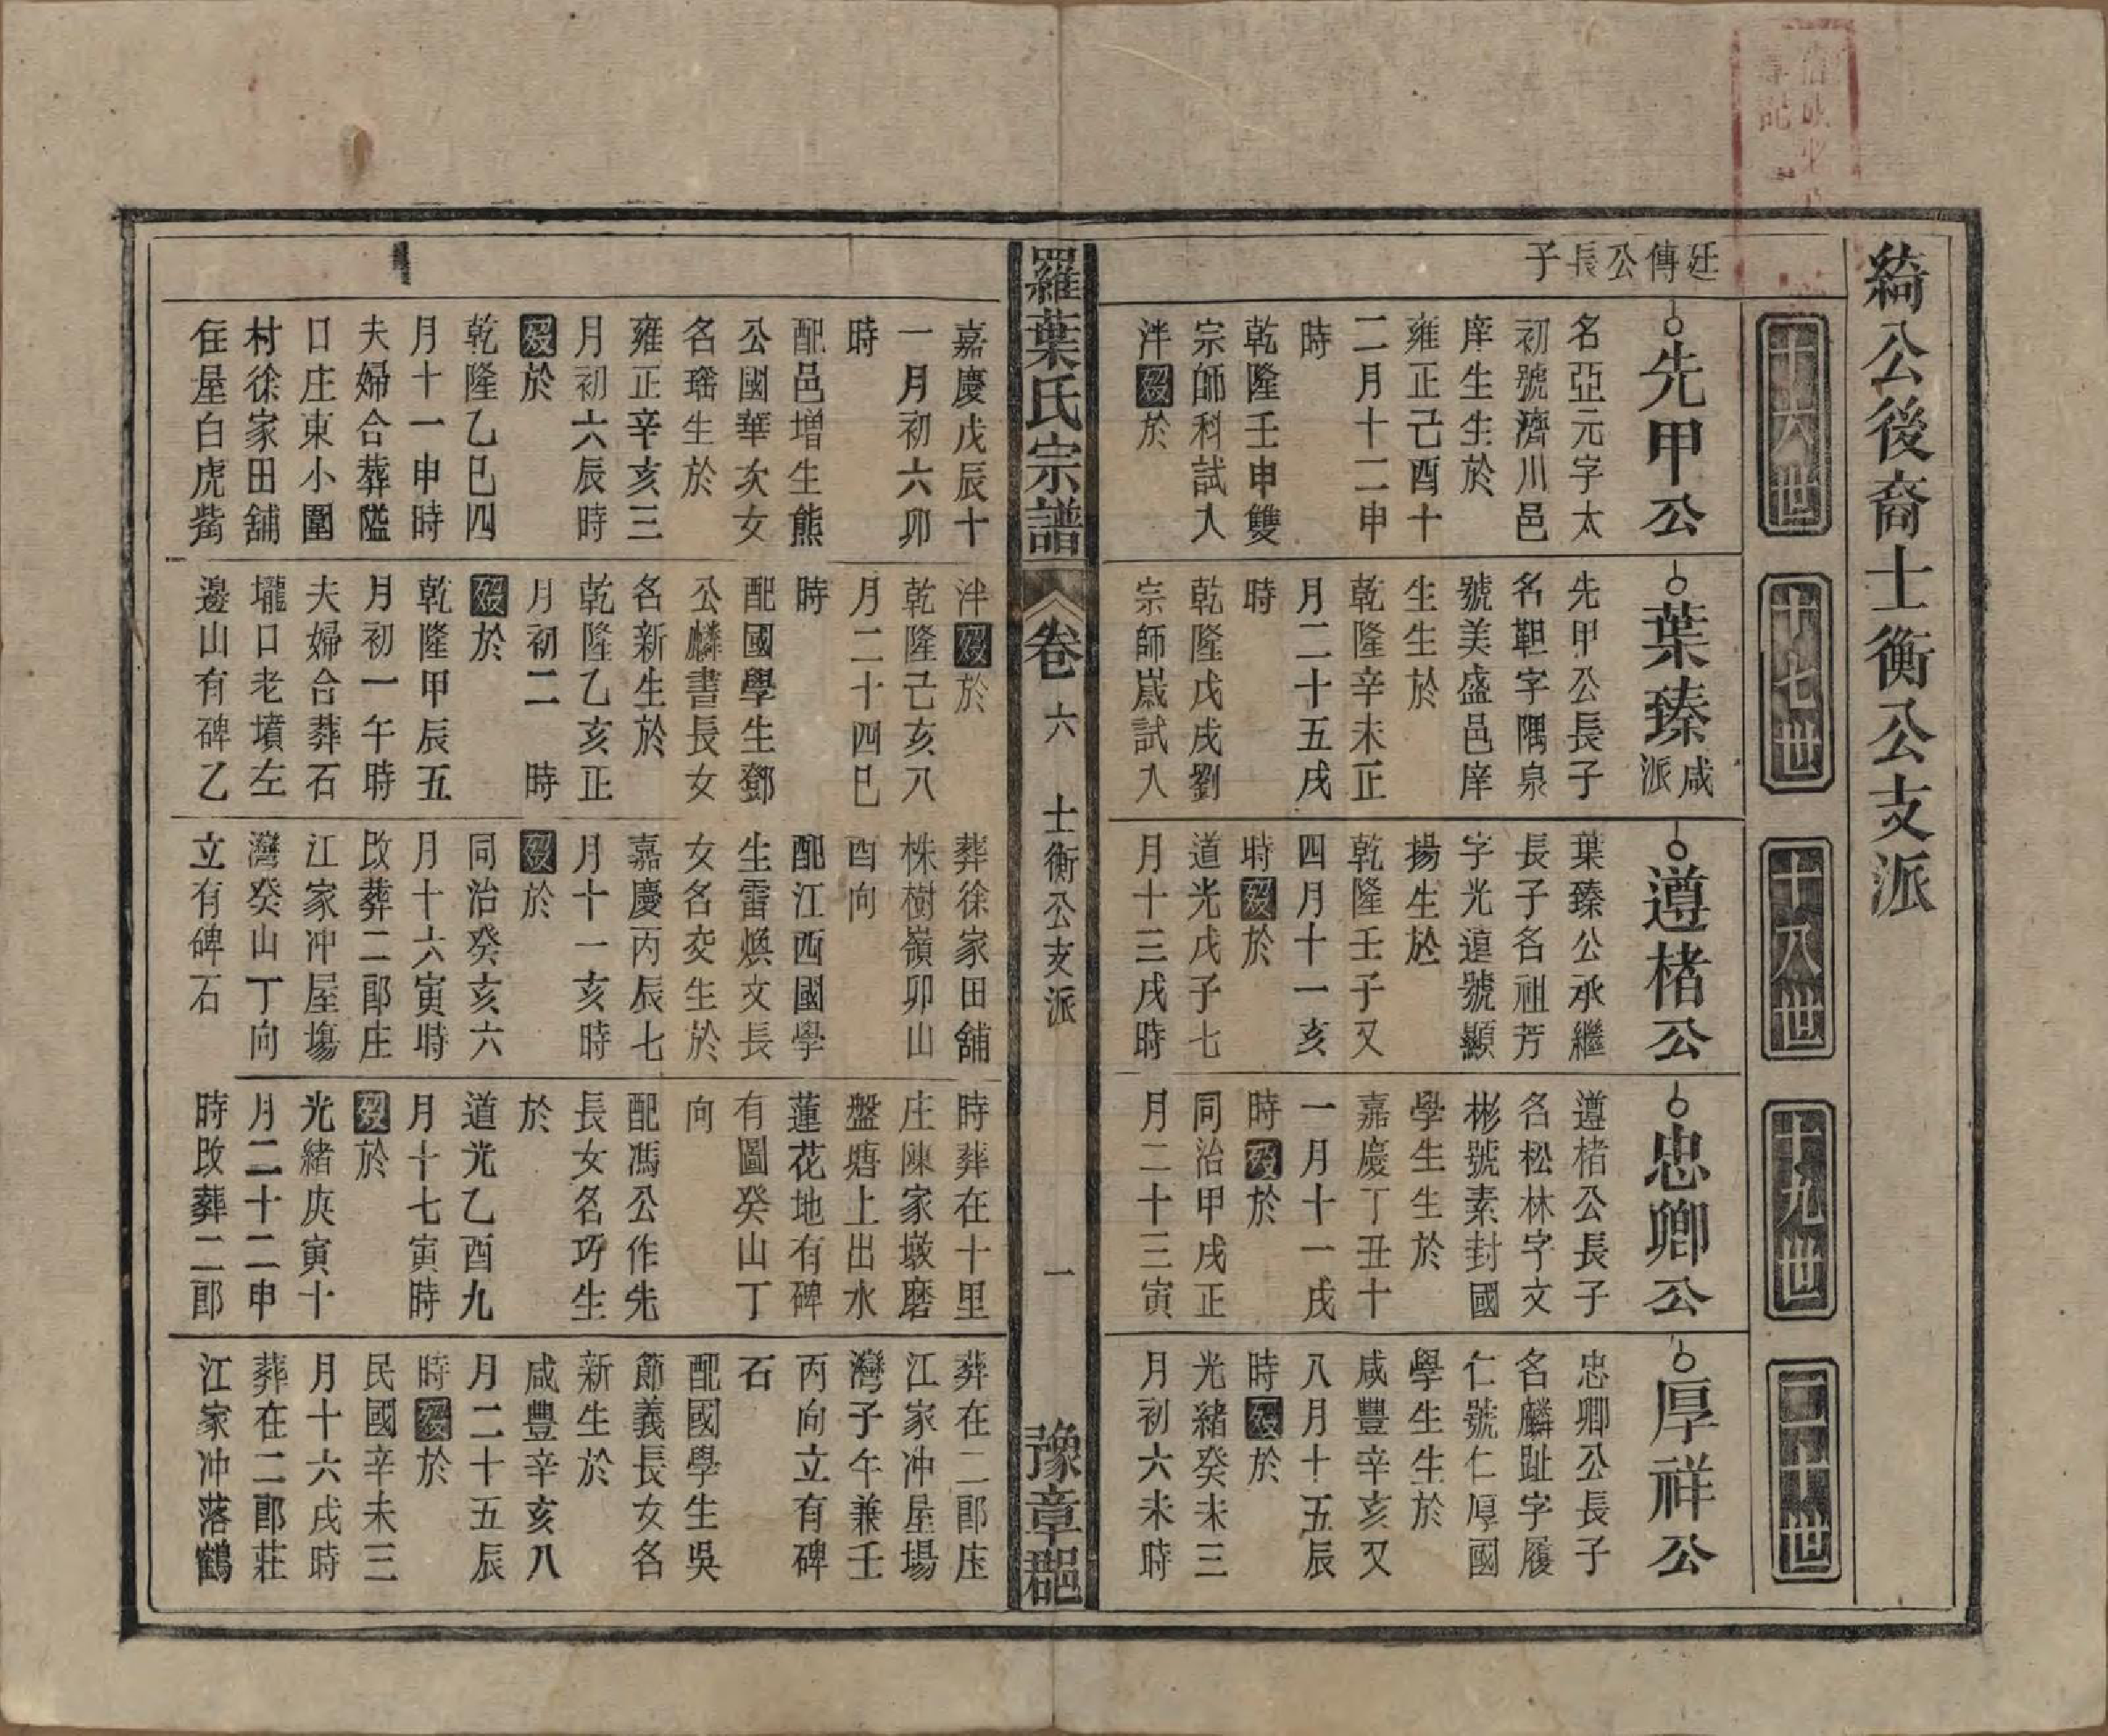 綺公後裔士衡公支派
廷傳公長子
十六世
先甲公
名亞元字太
初號濟川邑
庠生生於
雍正己酉十
二月十二申
時
乾隆壬申雙
宗師科試入
泮歿於
嘉慶戊辰十
一月初六卯
時
配邑增生熊
公國華次女
名瑶生於
雍正辛亥三
月初六辰時
歿於
乾隆乙巳四
月十一申時
夫婦合葬隘
口庄東小圍
村徐家田舖
住屋白虎觜
十七世
葉臻咸派
先甲公長子
名靼字隅泉
號美盛邑庠
生生於
乾隆辛未正
月二十五戌
時
乾隆戊戌劉
宗師歲試入
泮歿於
乾隆己亥八
月二十四巳
時
配國學生鄧
公麟書長女
名新生於
乾隆乙亥正
月初二 時
歿於
乾隆甲辰五
月初一午時
夫婦合葬石
壠口老墳左
邊山有碑乙
十八世
遵楮公
葉臻公承繼
長子名祖芳
字光遠號顯
揚生於
乾隆壬子又
四月十一亥
時歿於
道光戊子七
月十三戌時
葬徐家田舖
株樹嶺卯山
酉向
配江西國學
生雷煥文長
女名交生於
嘉慶丙辰七
月十一亥時
歿於
同治癸亥六
月十六寅時
改葬二郎庄
江家冲屋塲
灣癸山丁向
立有碑石
十九世
忠卿公
遵楮公長子
名松林字文
彬號素封國
學生生於
嘉慶丁丑十
一月十一戌
時歿於
同治甲戌正
月二十三寅
時葬在十里
庄陳家墩磨
盤塘上出水
蓮花地有碑
有圖癸山丁
向
配馮公作先
長女名巧生
於
道光乙酉九
月十七寅時
歿於
光緒庚寅十
月二十二申
時改葬二郎
二十世
厚祥公
忠卿公長子
名麟趾字履
仁號仁厚國
學生生於
咸豐辛亥又
八月十五辰
時歿於
光緒癸未三
月初六未時
葬在二郎庄
江家冲屋場
灣子午兼壬
丙向立有碑
石
配國學生吳
節義長女名
新生於
咸豐辛亥八
月二十五辰
時歿於
民國辛未三
月十六戌時
葬在二郎莊
江家冲落鶴
羅葉氏宗譜
卷六
士衡公支派
一
豫章郡